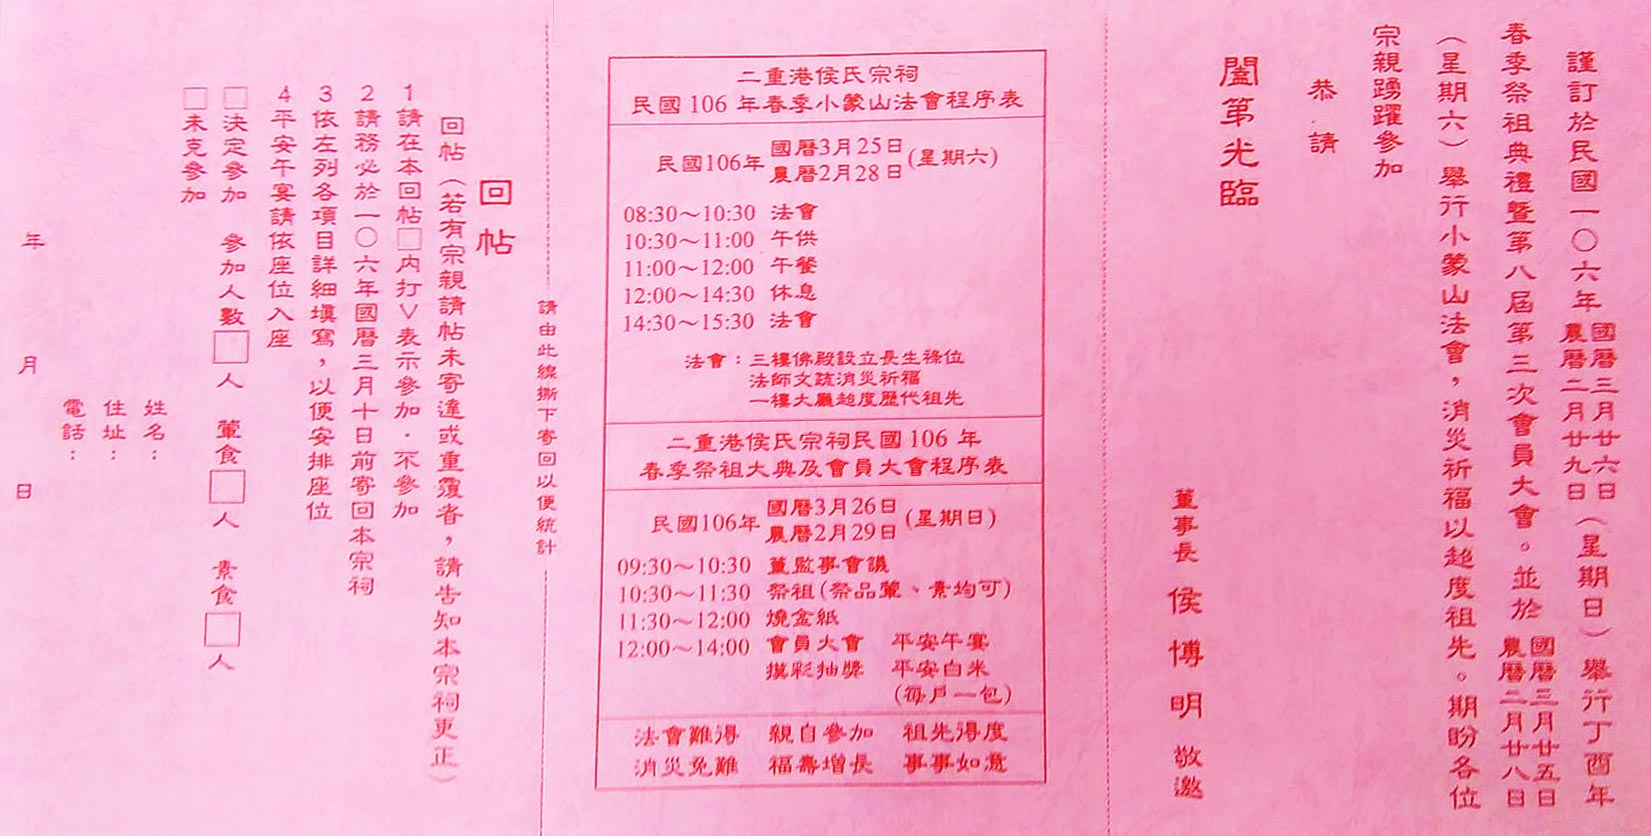 謹訂於民國一〇六年國曆三月廿六日農曆二月廿九日（星期日）舉行丁酉年
春季祭祖典禮暨第八屆第三次會員大會。並於國曆三月廿五日農曆二月廿八日
（星期六）舉行小蒙山法會，消災祈福以超度祖先。期盼各位
宗親踴躍參加
恭請
闔第光臨
董事長 侯博明 敬邀
二重港侯氏宗祠
民國 106 年春季小蒙山法會程序表
民國106年 國曆3月25日 農曆2月28日 (星期六)
08:30～10:30 法會
10:30～11:00 午供
11:00～12:00 午餐
12:00～14:30 休息
14:30～15:30 法會
法會：三樓佛殿設立長生祿位
法師文疏消災祈福
一樓大廳超度歷代祖先
二重港侯氏宗祠民國 106 年
春季祭祖大典及會員大會程序表
民國106年 國曆3月26日 農曆2月29日 (星期日)
09:30～10:30 董監事會議
10:30～11:30 祭祖(祭品葷、素均可)
11:30～12:00 燒金紙
12:00～14:00 會員大會 平安午宴
摸彩抽獎 平安白米
(每戶一包)
法會難得 親自參加 祖先得度
消災免難 福壽增長 事事如意
請由此線撕下寄回以便統計
回帖
回帖（若有宗親請帖未寄達或重覆者，請告知本宗祠更正）
1 請在本回帖□內打∨表示參加．不參加
2 請務必於一〇六年國曆三月十日前寄回本宗祠
3 依左列各項目詳細填寫，以便安排座位
4 平安午宴請依座位入座
□決定參加 參加人數□人 葷食□人 素食□人
□未克參加
姓名：
住址：
電話：
年 月 日